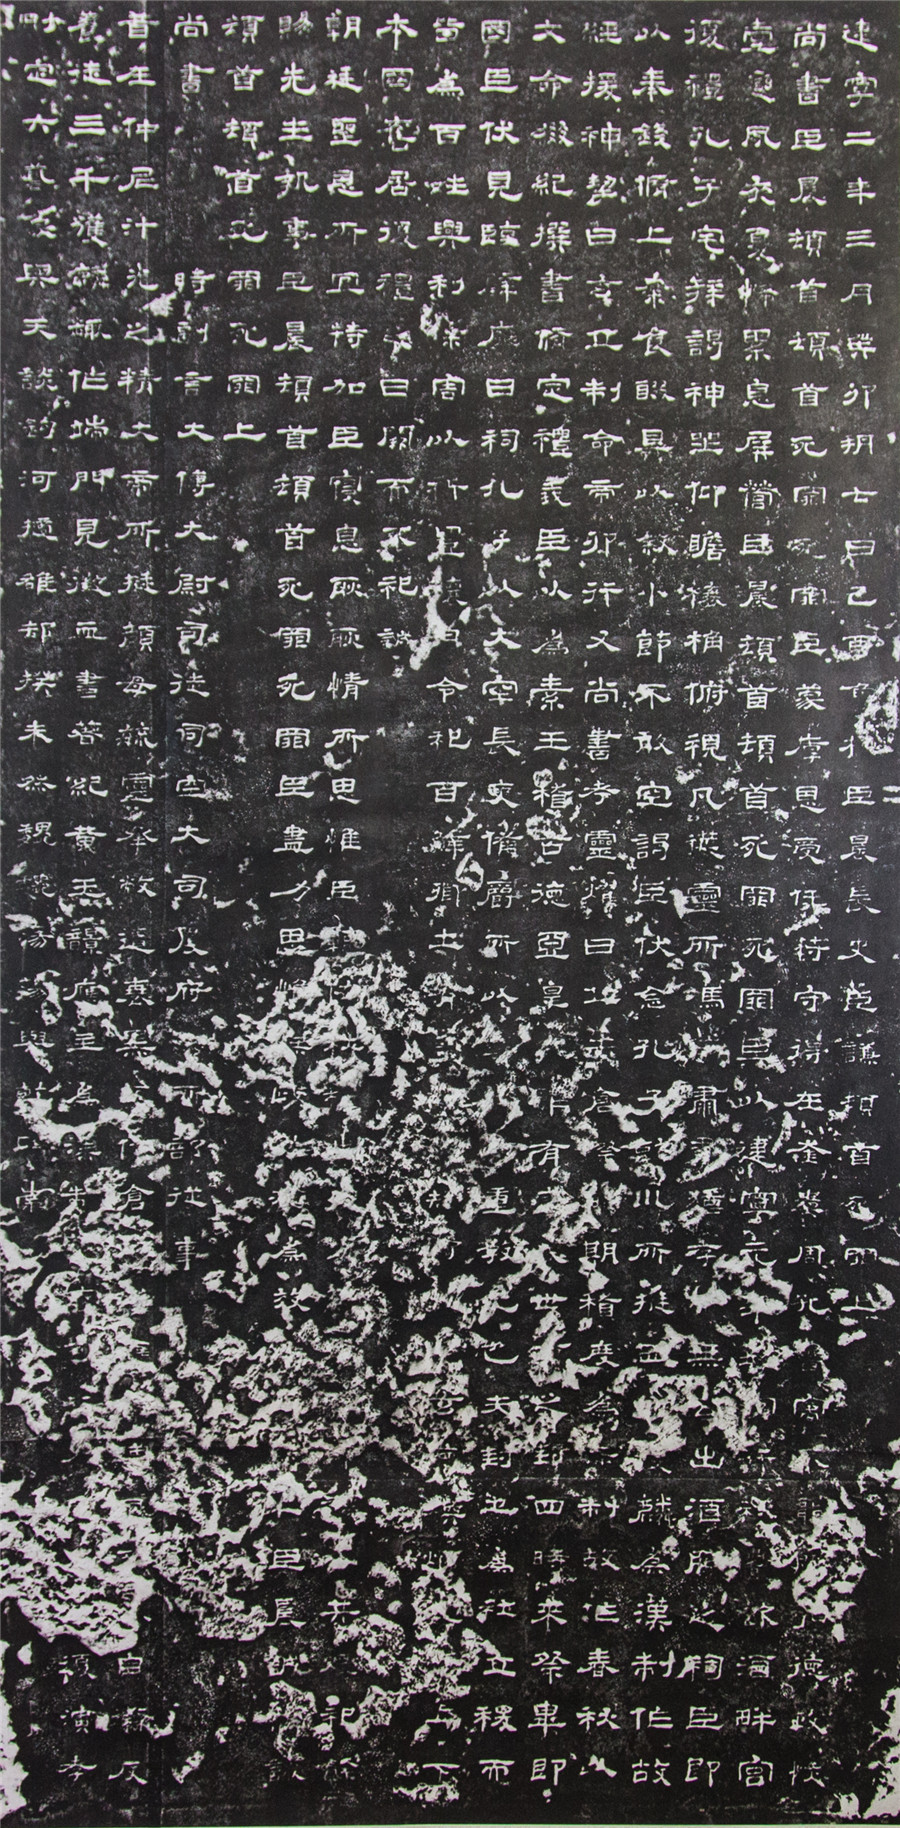 建寧二年三月癸卯朔七日己酉魯相臣晨長史臣謙頓首死罪上
尚書臣晨頓首頓首死罪死罪臣蒙厚恩受任符守得在奎婁周孔舊寓不能闡弘德政恢
壹變夙夜憂怖累息屏營臣晨頓首頓首死罪死罪臣以建寧元年到官行秋饗飲酒畔宮
復禮孔子宅拜謁神坐仰瞻榱桷俯視几筵靈所馮依肅肅猶存而無公出酒脯之祠臣即
以奉錢修上案食醊具以敘小節不敢空謁臣伏念孔子乾坤所挺西狩獲麟為漢制作故
經援神挈曰玄丘制命帝卯行又尚書考靈燿曰丘生倉際觸期稽度為赤制故作春秋以
文命綴紀撰書修定禮義臣以為素王稽古德亞皇代雖有褒成世享之封四時來祭畢即
國臣伏見臨辟廱日祠孔子以大牢長吏備爵所以尊先師重教化也夫封土為社立稷而
皆為百姓興利除害以祈豐穰月令祀百辟卿士有益於民矧乃孔子玄德煥炳光於上下
本國舊居復禮之日闕而不祀誠
朝廷聖恩所宜特加臣寢息耿耿情所思惟臣輒依社稷出王家春秋行禮以共煙祀餘
賜先生執事臣晨頓首頓首死罪死罪臣盡力思惟庶政報稱為效增異輒上臣晨誠惶
頓首頓首死罪死罪上
尚書時副言大傅大尉司徒司空大司農府治所部從事
昔在仲尼汁光之精大帝所挺顏母毓靈承敝遭衰黑不代倉應聘歎鳳自衛反
養徒三千獲麟趣作端門見徵血書著紀黃玉韻應主為漢制道乃作復演孝
刪定六藝象與天談鉤河擿雒却揆未然魏魏蕩蕩與乾比崇